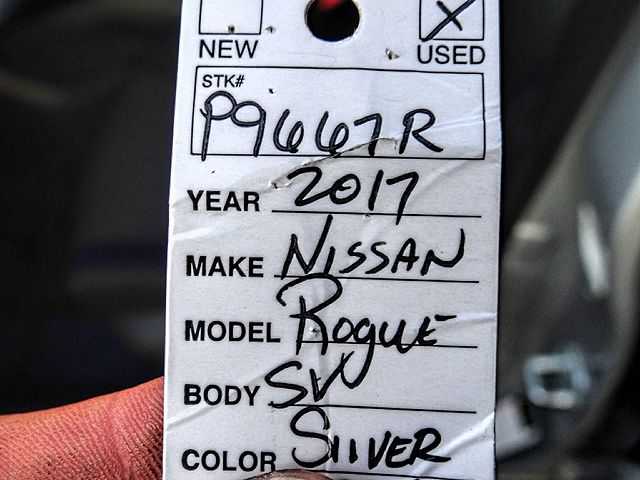 NEW USED
STK#
P9667R
YEAR 2017
MAKE NISSAN
MODEL ROGUE
BODY SV
COLOR SILVER